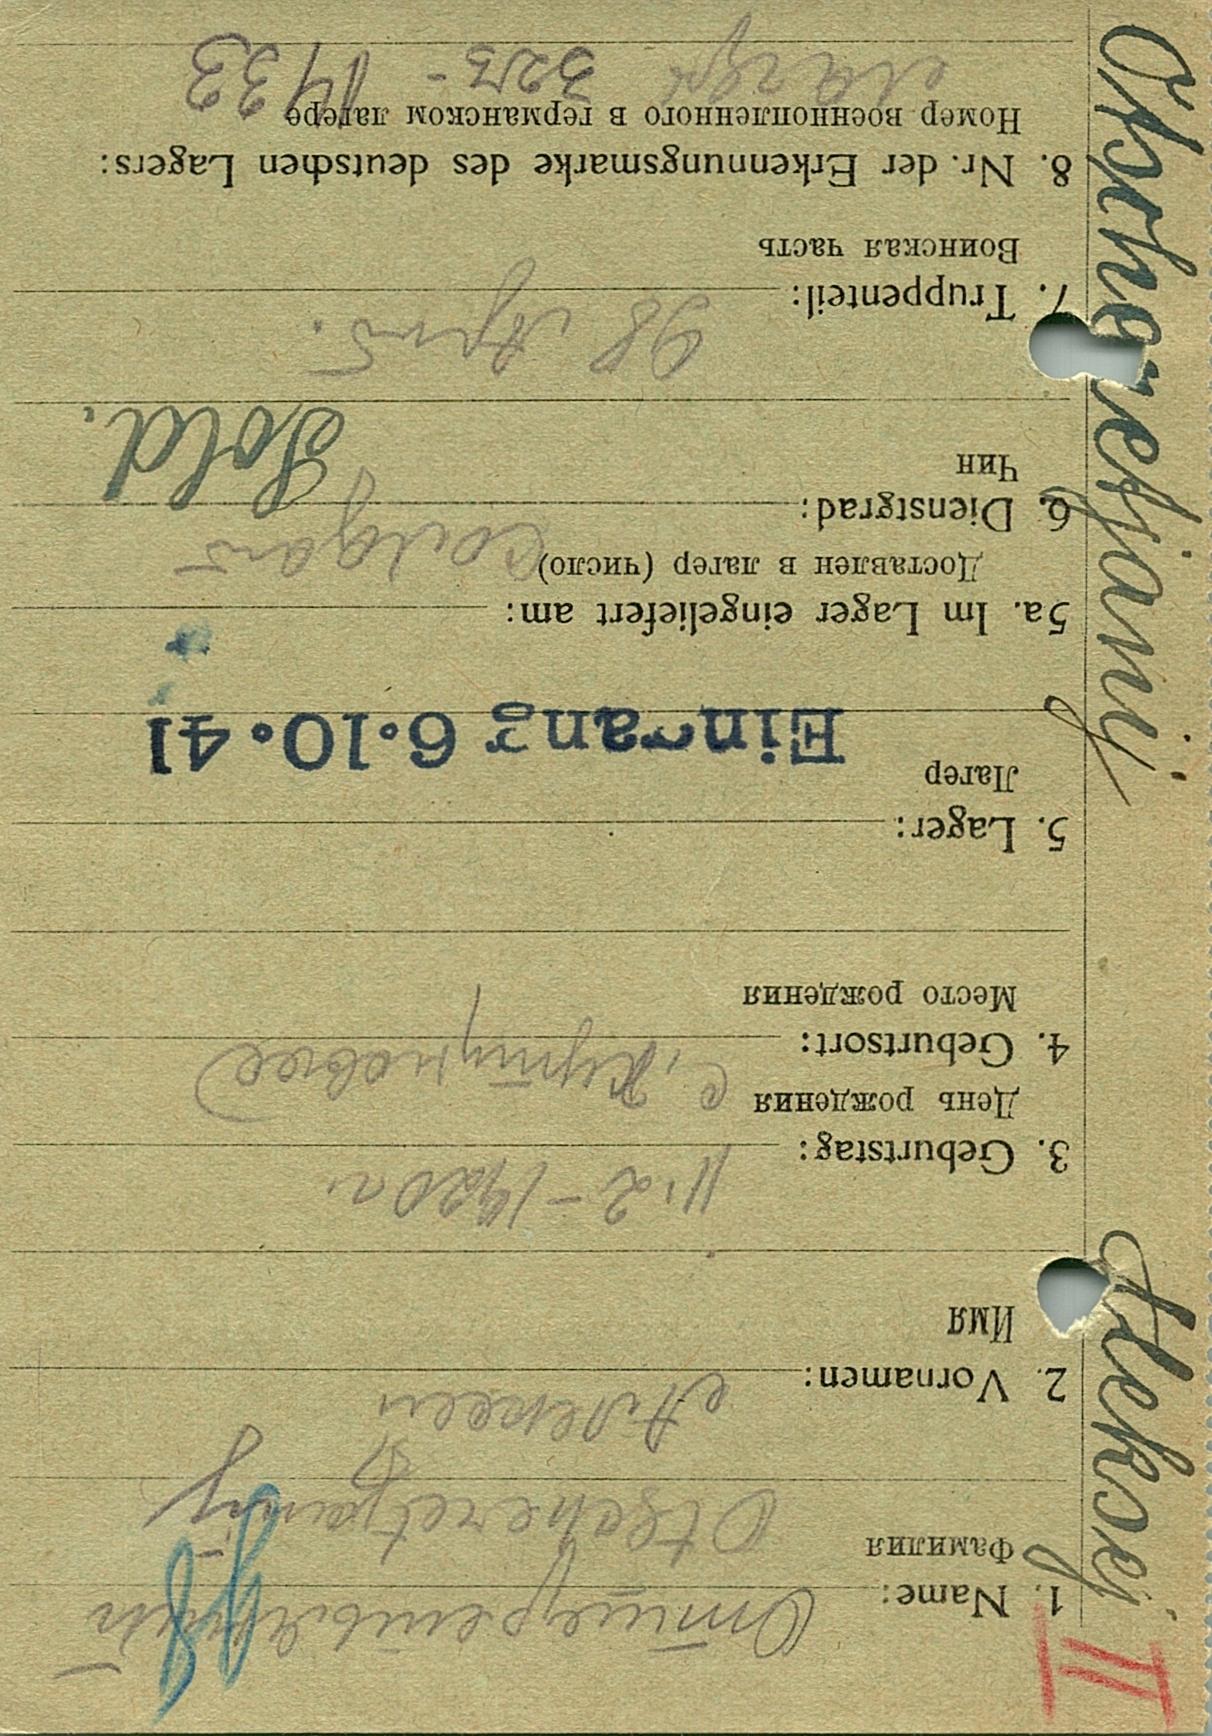 II
Otscheretjanij Aleksej
1. Name:
Фамилия
Otscheretjanij
2. Vornamen: Алексей
Имя
3. Geburtstag: 11·2-1920 г
День рождения
4. Geburtsort: с,
Место рождения
5. Lager:
Лагер
Eingang 6·10·41
5a. Im Lager eingeliefert am:
Доставлен в лагер (число)
6. Dienstgrad: солдат Sold.
Чин
7. Truppenteil: 98
Воинская часть
8. Nr. der Erkennungsmarke des deutschen Lagers:
Номер военнопленного в германском лагере
лагер 323 - 1433